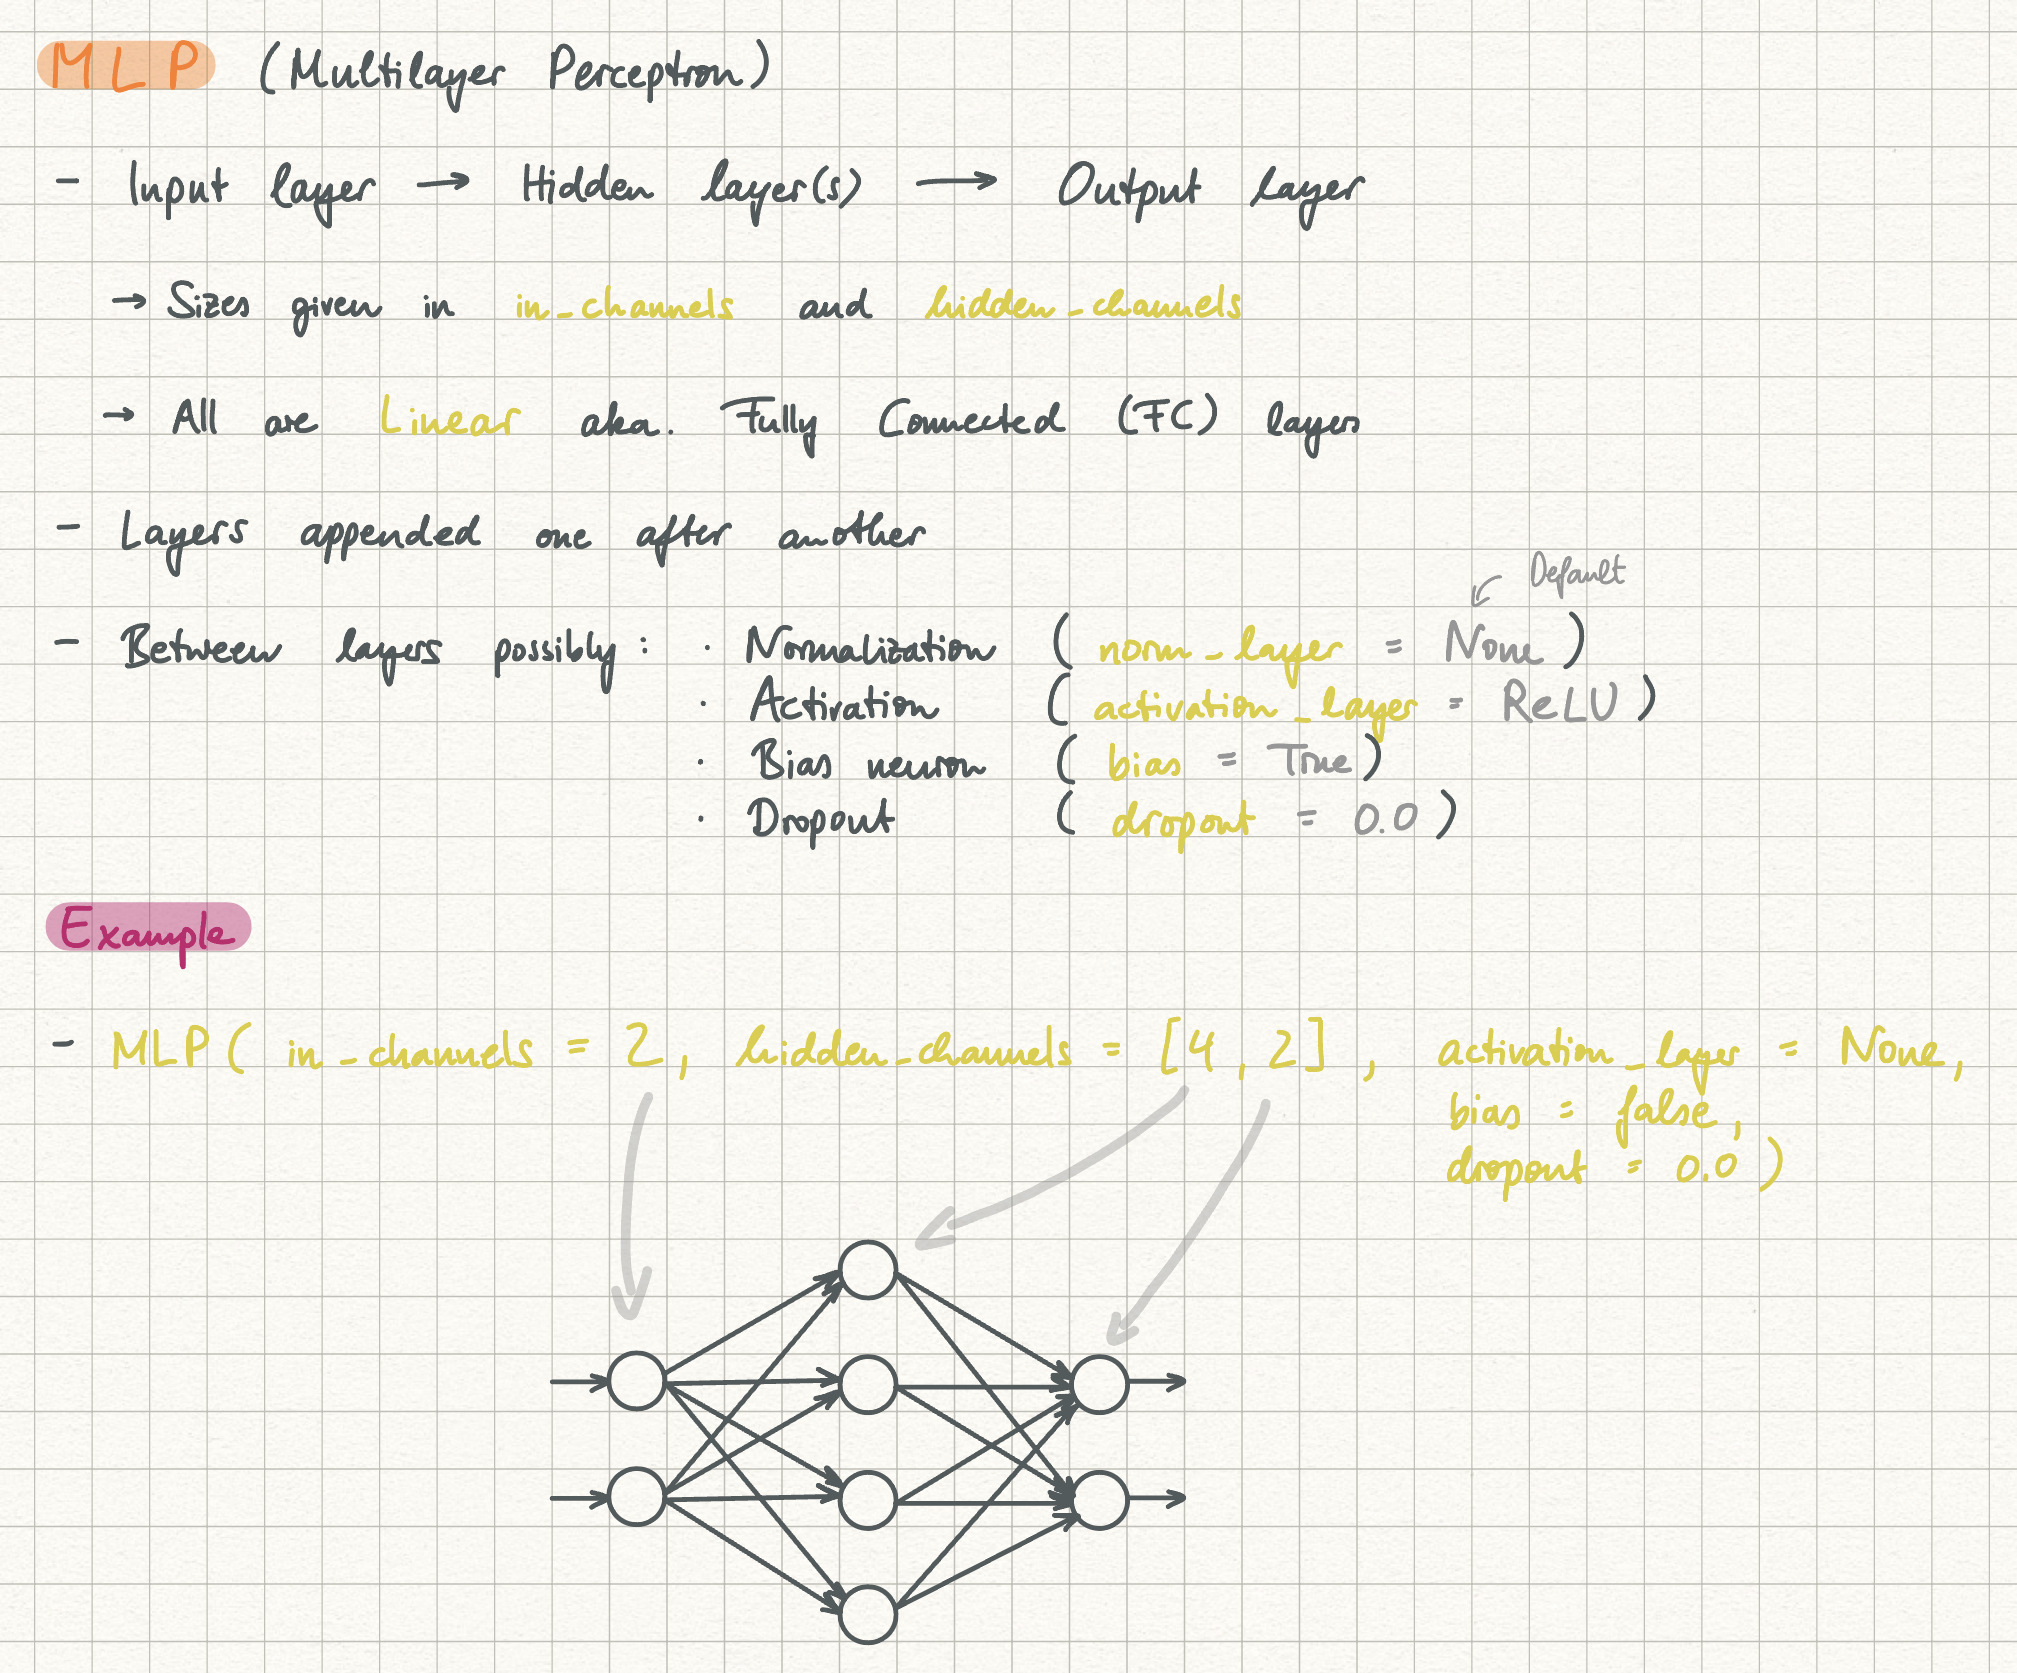 MLP (Multilayer Perceptron)
- Input layer → Hidden layer(s) → Output layer
→ Sizes given in in_channels and hidden_channels
→ All are Linear aka. Fully Connected (FC) layers
- Layers appended one after another
Default
- Between layers possibly: · Normalization (norm_layer = None)
· Activation (activation_layer = ReLU)
· Bias neuron (bias = True)
· Dropout (dropout = 0.0)
Example
- MLP(in_channels = 2, hidden_channels = [4, 2], activation_layer = None,
bias = false,
dropout = 0.0)